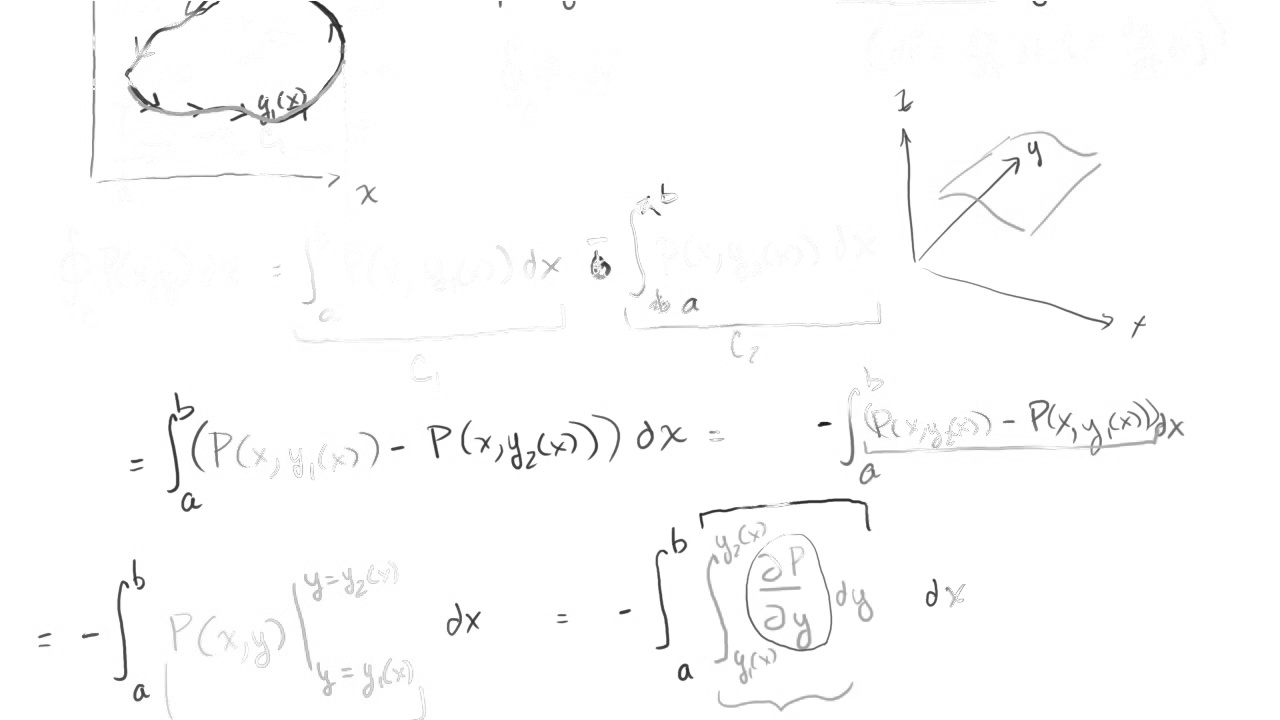 y₁(x)
x
z
y
x
∮ P(x,y) dx = ∫ₐ P(x, y₁(x)) dx - ∫ₐᵇ P(x, y₂(x)) dx
C₁
C₂
= ∫ₐᵇ (P(x, y₁(x)) - P(x, y₂(x))) dx = - ∫ₐᵇ (P(x, y₂(x)) - P(x, y₁(x))) dx
= - ∫ₐᵇ P(x,y) | y = y₂(x) y = y₁(x) dx = - ∫ₐᵇ ∫ y₁(x) y₂(x) ∂P/∂y dy dx